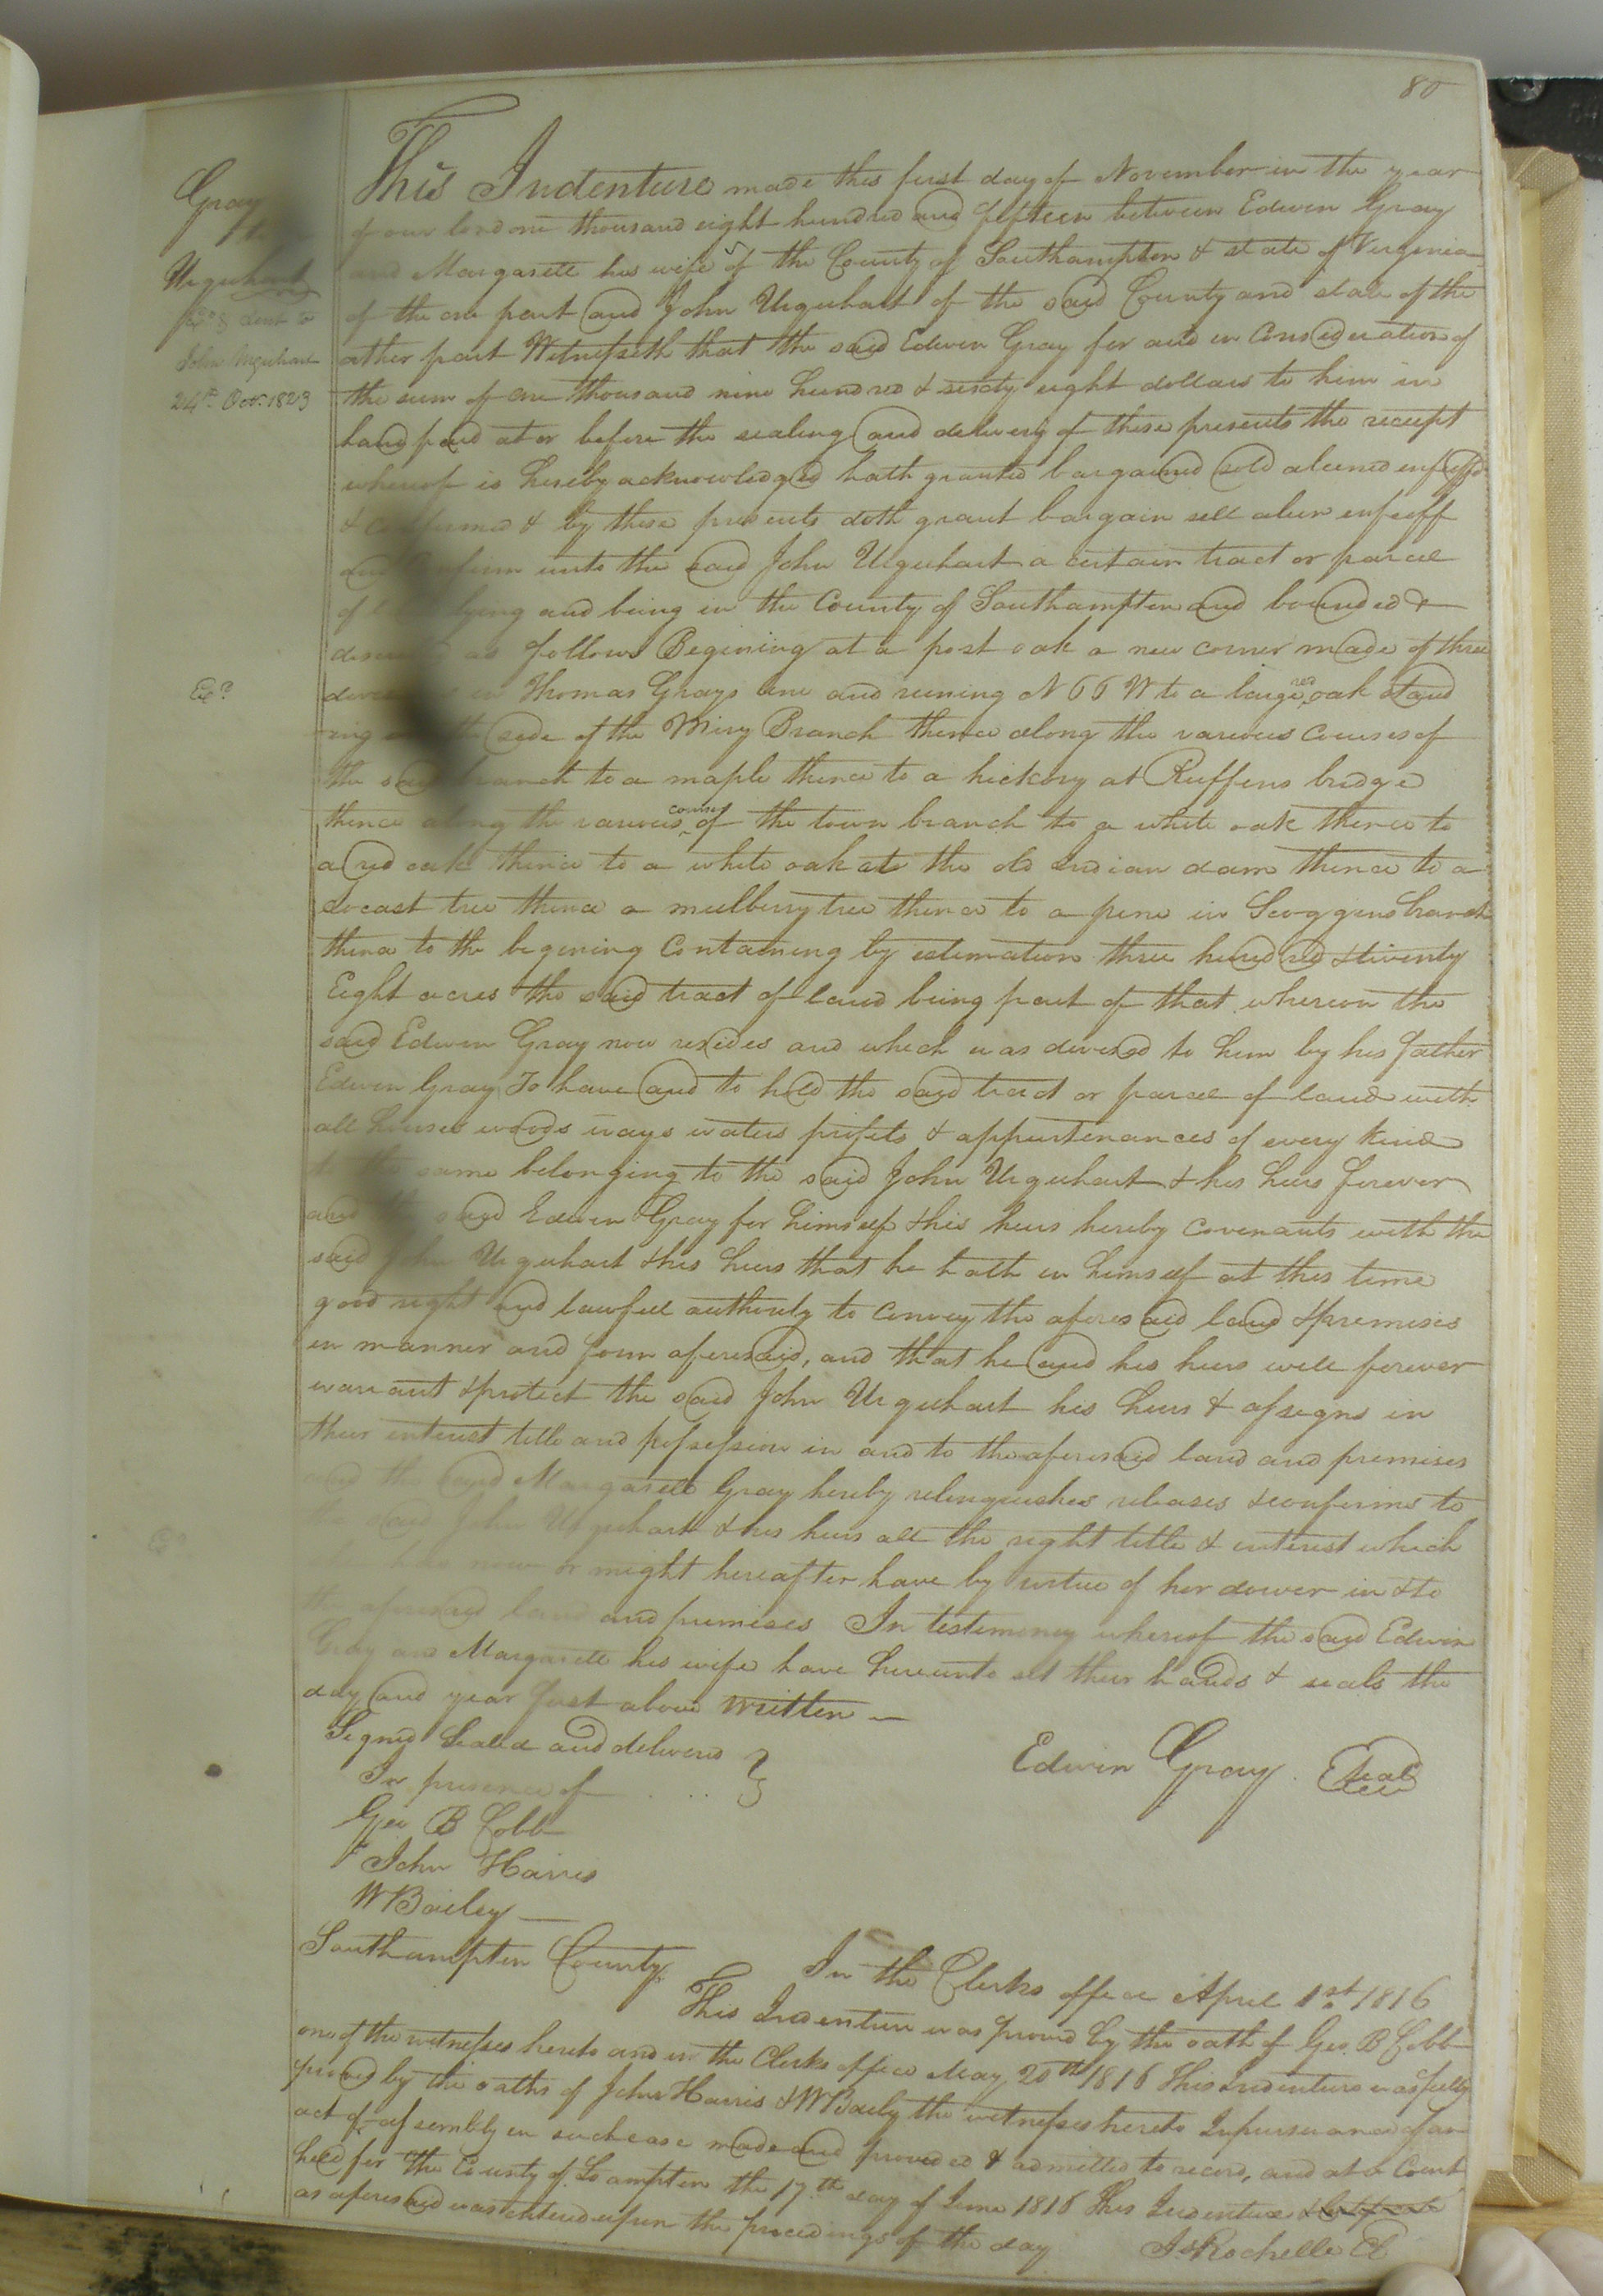 80
Gray
to
Urquhart
Exd & dent to
John Urquhart
24th Octo. 1823
Ex?
This Indenture made this first day of November in the year
of our lord one thousand eight hundred and fifteen between Edwin Gray
and Margarett his wife of the County of Southampton & state of Virginia
of the one part and John Urquhart of the said County and state of the
other part Witnesseth that the said Edwin Gray for and in Consideration of
the sum of one thousand nine hundred & sixty eight dollars to him in
hand paid at or before the sealing and delivery of these presents the receipt
whereof is hereby acknowledged hath granted bargained sold aliened enfeoffd
& confirmed & by these presents doth grant bargain sell alien enfeoff
and confirm unto the said John Urquhart a certain tract or parcel
of lying and being in the County of Southampton and bounded &
as follows Begining at a post oak a new corner made of three
in Thomas Grays line and runing N 66 W to a large red oak stand
ing side of the Miry Branch thence along the various courses of
the said branch to a maple thence to a hickory at Ruffins bridge
thence along the various courses of the town branch to a white oak thence to
a red oak thence to a white oak at the old Indian dam thence to a
Locast tree thence a mulberry tree thence to a pine in Scoggins branch
thence to the begining Containing by estimation three hundred & twenty
Eight acres the said tract of land being part of that whereon the
said Edwin Gray now resides and which was devised to him by his father
Edwin Gray To have and to hold the said tract or parcel of land with
all houses woods ways waters profits & appurtenances of every kind
to the same belonging to the said John Urquhart & his heirs forever
and the said Edwin Gray for himself & his heirs hereby covenants with the
said John Urquhart & his heirs that he hath in himself at this time
good right and lawfull authority to convey the aforesaid land & premises
in manner and form aforesaid, and that he and his heirs will forever
warrant & protect the said John Urquhart his heirs & assigns in
their interest title and possession in and to the aforesaid land and premises
and the said Margarett Gray hereby relinquishes releases & confirms to
the said John Urquhart & his heirs all the right title & interest which
now or might hereafter have by virtue of her dower in & to
the aforesaid land and premises In testimony whereof the said Edwin
Gray and Margarett his wife have hereunto set their hands & seals the
day and year first above written —
Signed Sealed and delivered
In presence of
Edwin Gray Seal
Geo B Cobb
John Harris
W Bailey
Southampton County. In the Clerks office April 1st 1816
This Indenture was proved by the oath of Geo. B Cobb
one of the witnesses hereto and in the Clerks office May 20th 1816 This Indenture was fully
proved by the oaths of John Harris & W Baily the witnesses hereto In pursuance of an
act of assembly in such case made and provided & admitted to record, and at a Court
held for the County of So ampton the 17th day of June 1816 This Indenture &
as aforesaid was entered upon the proceedings of the day
Js Rochelle Cl